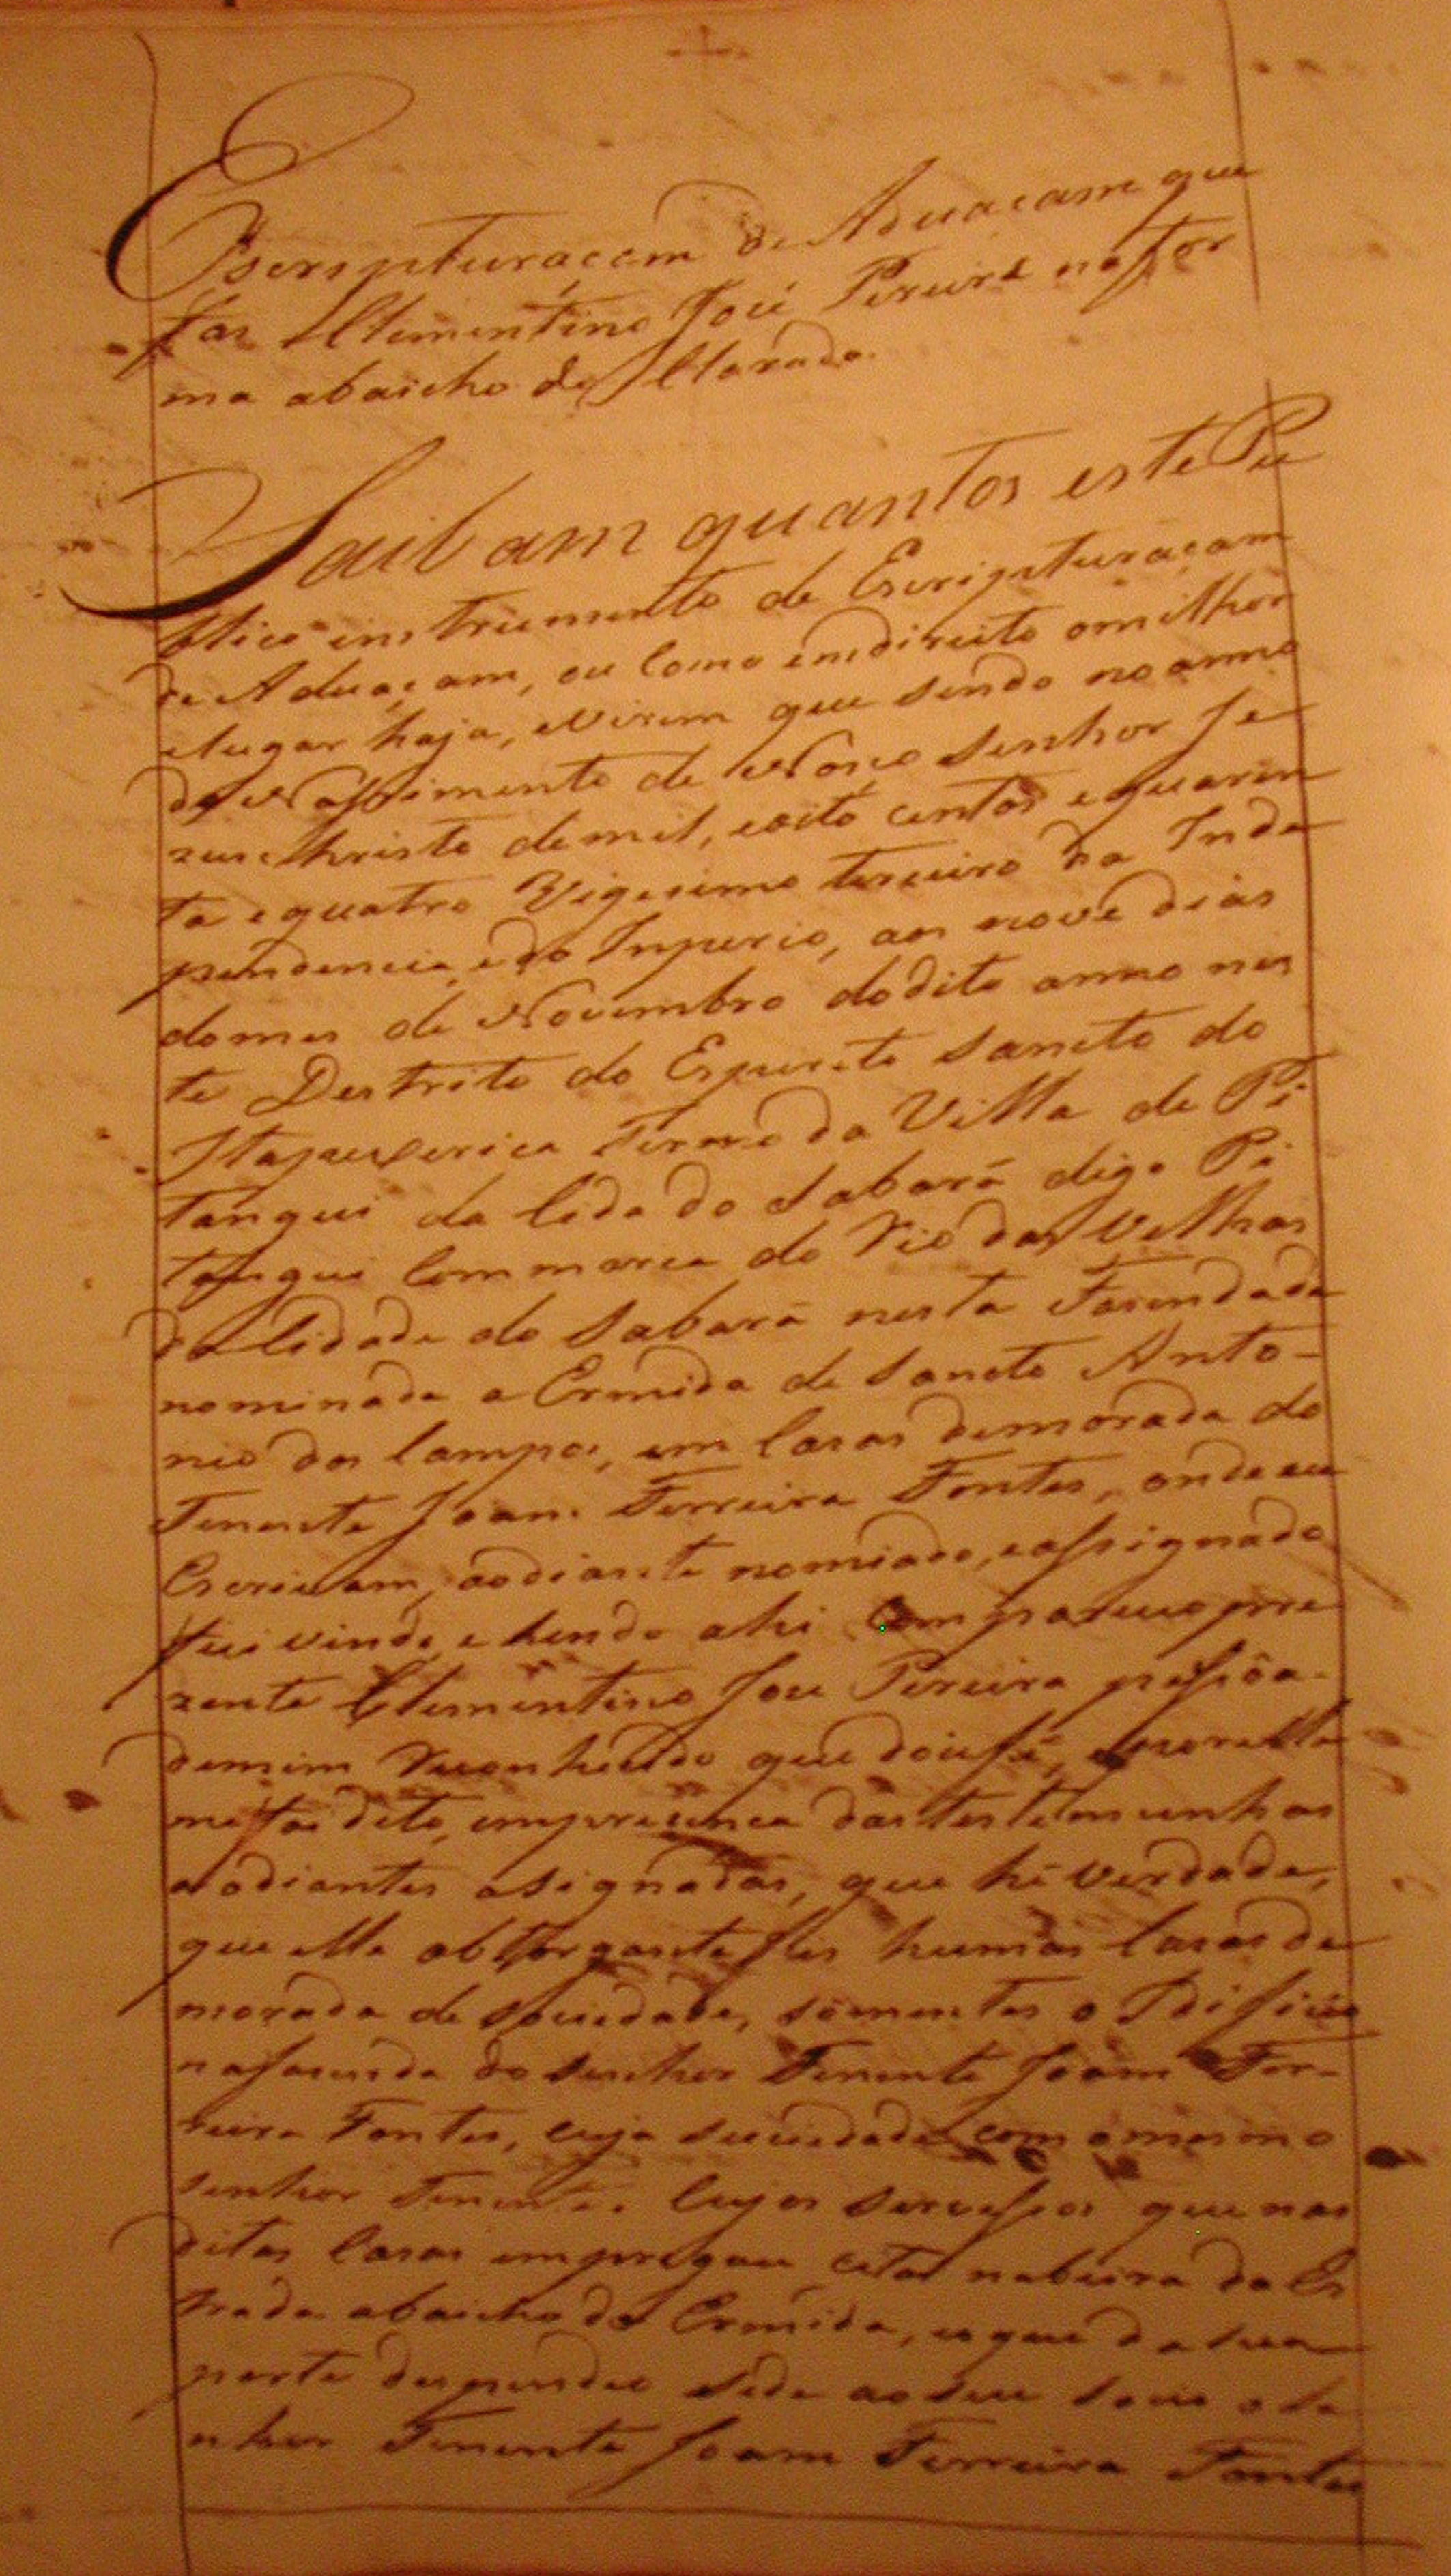 Escripturaçam de Aduaçam que
fas Clementino José Pereira na for
ma abaicho de Clarada.
Saibam quantos este Pu
blico instrumento de Escripturaçam
de Aduaçam, ou como emdireito omilhor
elugar haja, eVirem que sendo no anno
do Nassimento de Noso Senhor Je
zus Christo demil, eoito centos equaren
ta equatro Vigesimo terceiro da Inde
pendencia, edo Inperio, aos nove dias
domes de Novembro dodito anno nes
te Destrito do Espirito Sancto do
Itapecerica Termo da Villa de Pi
tangui da Cida do Sabará digo Pi
tangui Commarca do Rio das Velhas
da Cidade do Sabará nesta Fasenda de
nominada a Ermida de Sancto Anto-
nio dos Campos, em Casas demorada do
Tenente Joam Ferreira Fontes, onde eu
Escrivam, aodiante nomiado, eassignado
fui vindo, e hendo ahi Compareceo pre
zente Clementino Jose Pereira pessôa
demim Reconhecido que doufé, eporelle
mefoi dito, emprezenca das testemunhas
aodiantes asignadas, que hé Verdade,
que elle obtorgante fes humas Casas de
morada de Sociedade, sómentes o Idificio
nafasenda do Senhor Tenente Joam Fer-
reira Fontes, cuja Sociedade com omesmo
Senhor Tenente. Cujos Servissos que nas
ditas Casas empregou, citas nabeira da Es
trada abaicho da Ermida, eoque da sua
parte despendeo Séde aoSeu Socio o Se
nhor Tenente Joam Ferreira Fontes